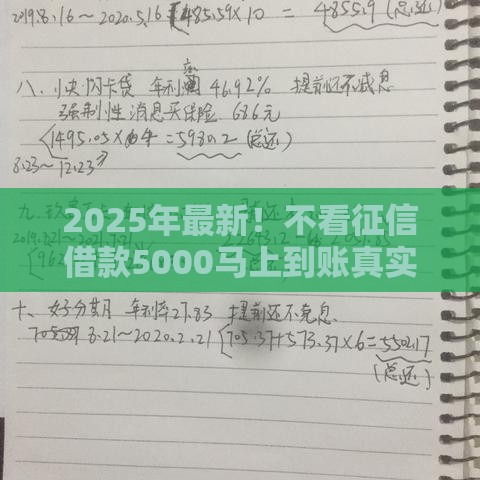 2019.8.16～2020.5.16 485.59×10 = 4855.9 (总还)
八、小央闪卡贷 年利率 46.92% 提前还不减息
强制性消息买保险 686元
1495.05×4=5980.2 (总还)
8.23～12.23
九、
2025年最新！不看征信
借款5000马上到账真实
十、好分期 年利率27.83 提前还不免息
8.21～2020.2.21 [705.37+573.37×6=5502.17
(总还)